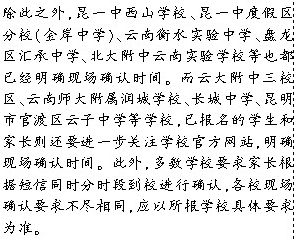 除此之外,昆一中西山学校、昆一中度假区
分校(金岸中学)、云南衡水实验中学、盘龙
区汇承中学、北大附中云南实验学校等也都
已经明确现场确认时间。而云大附中三校
区、云南师大附属润城学校、长城中学、昆明
市官渡区云子中学等学校,已报名的学生和
家长则还要进一步关注学校官方网站,明确
现场确认时间。此外,多数学校要求家长根
据短信同时分时段到校进行确认,各校现场
确认要求不尽相同,应以所报学校具体要求
为准。